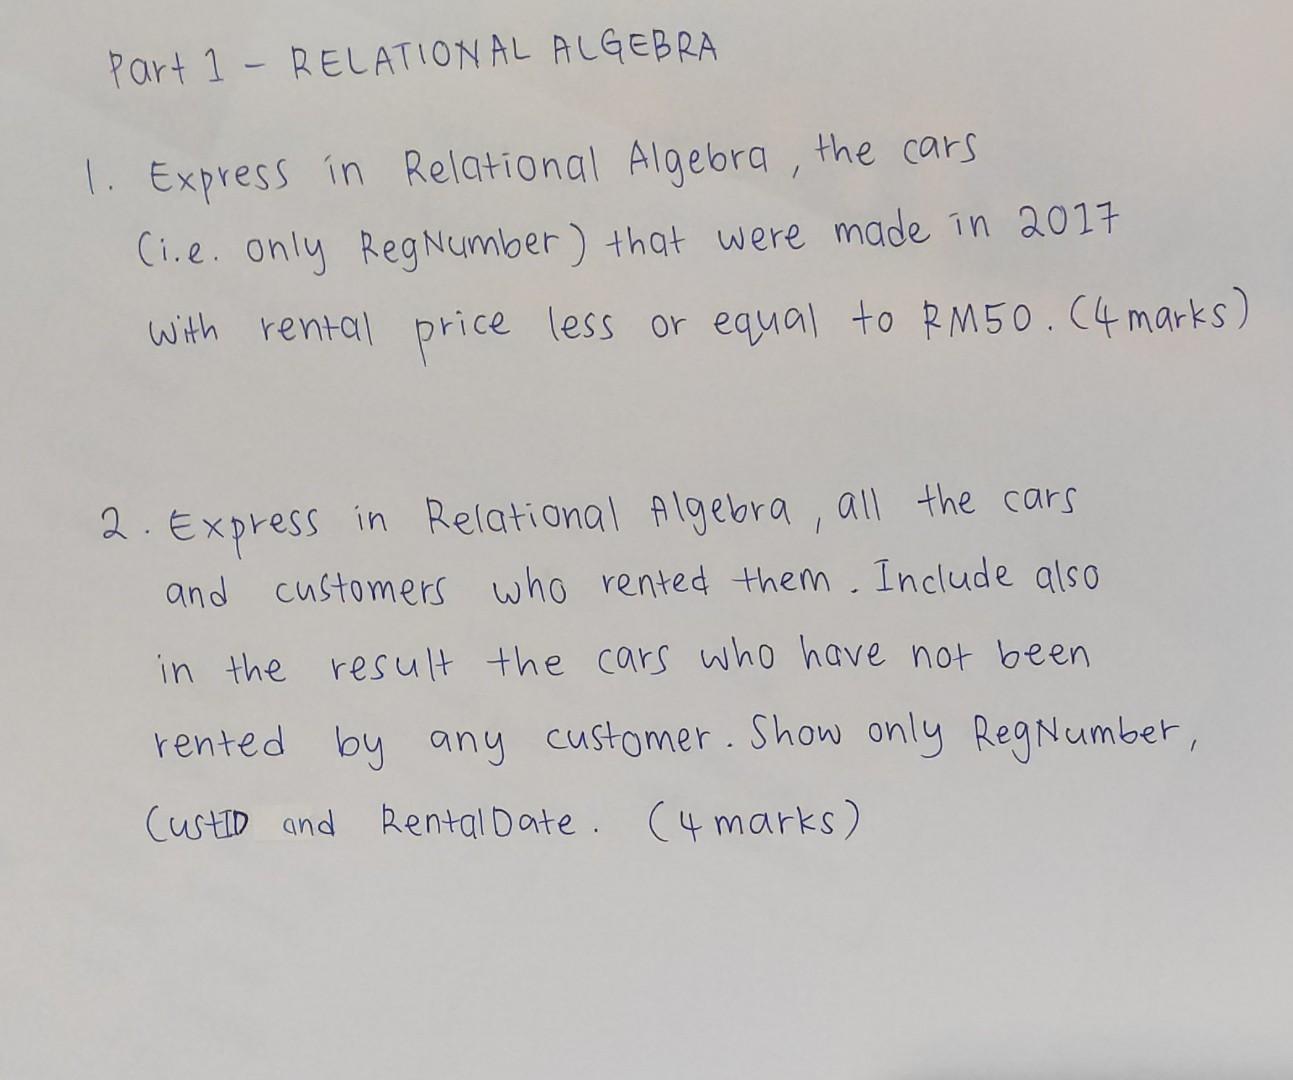 Part 1 - RELATIONAL ALGEBRA
1. Express in Relational Algebra, the cars
(i.e. only RegNumber) that were made in 2017
with rental price less or equal to RM50. (4 marks)
2. Express in Relational Algebra, all the cars
and customers who rented them. Include also
in the result the cars who have not been
rented by any customer. Show only RegNumber,
CustID and RentalDate. (4 marks)